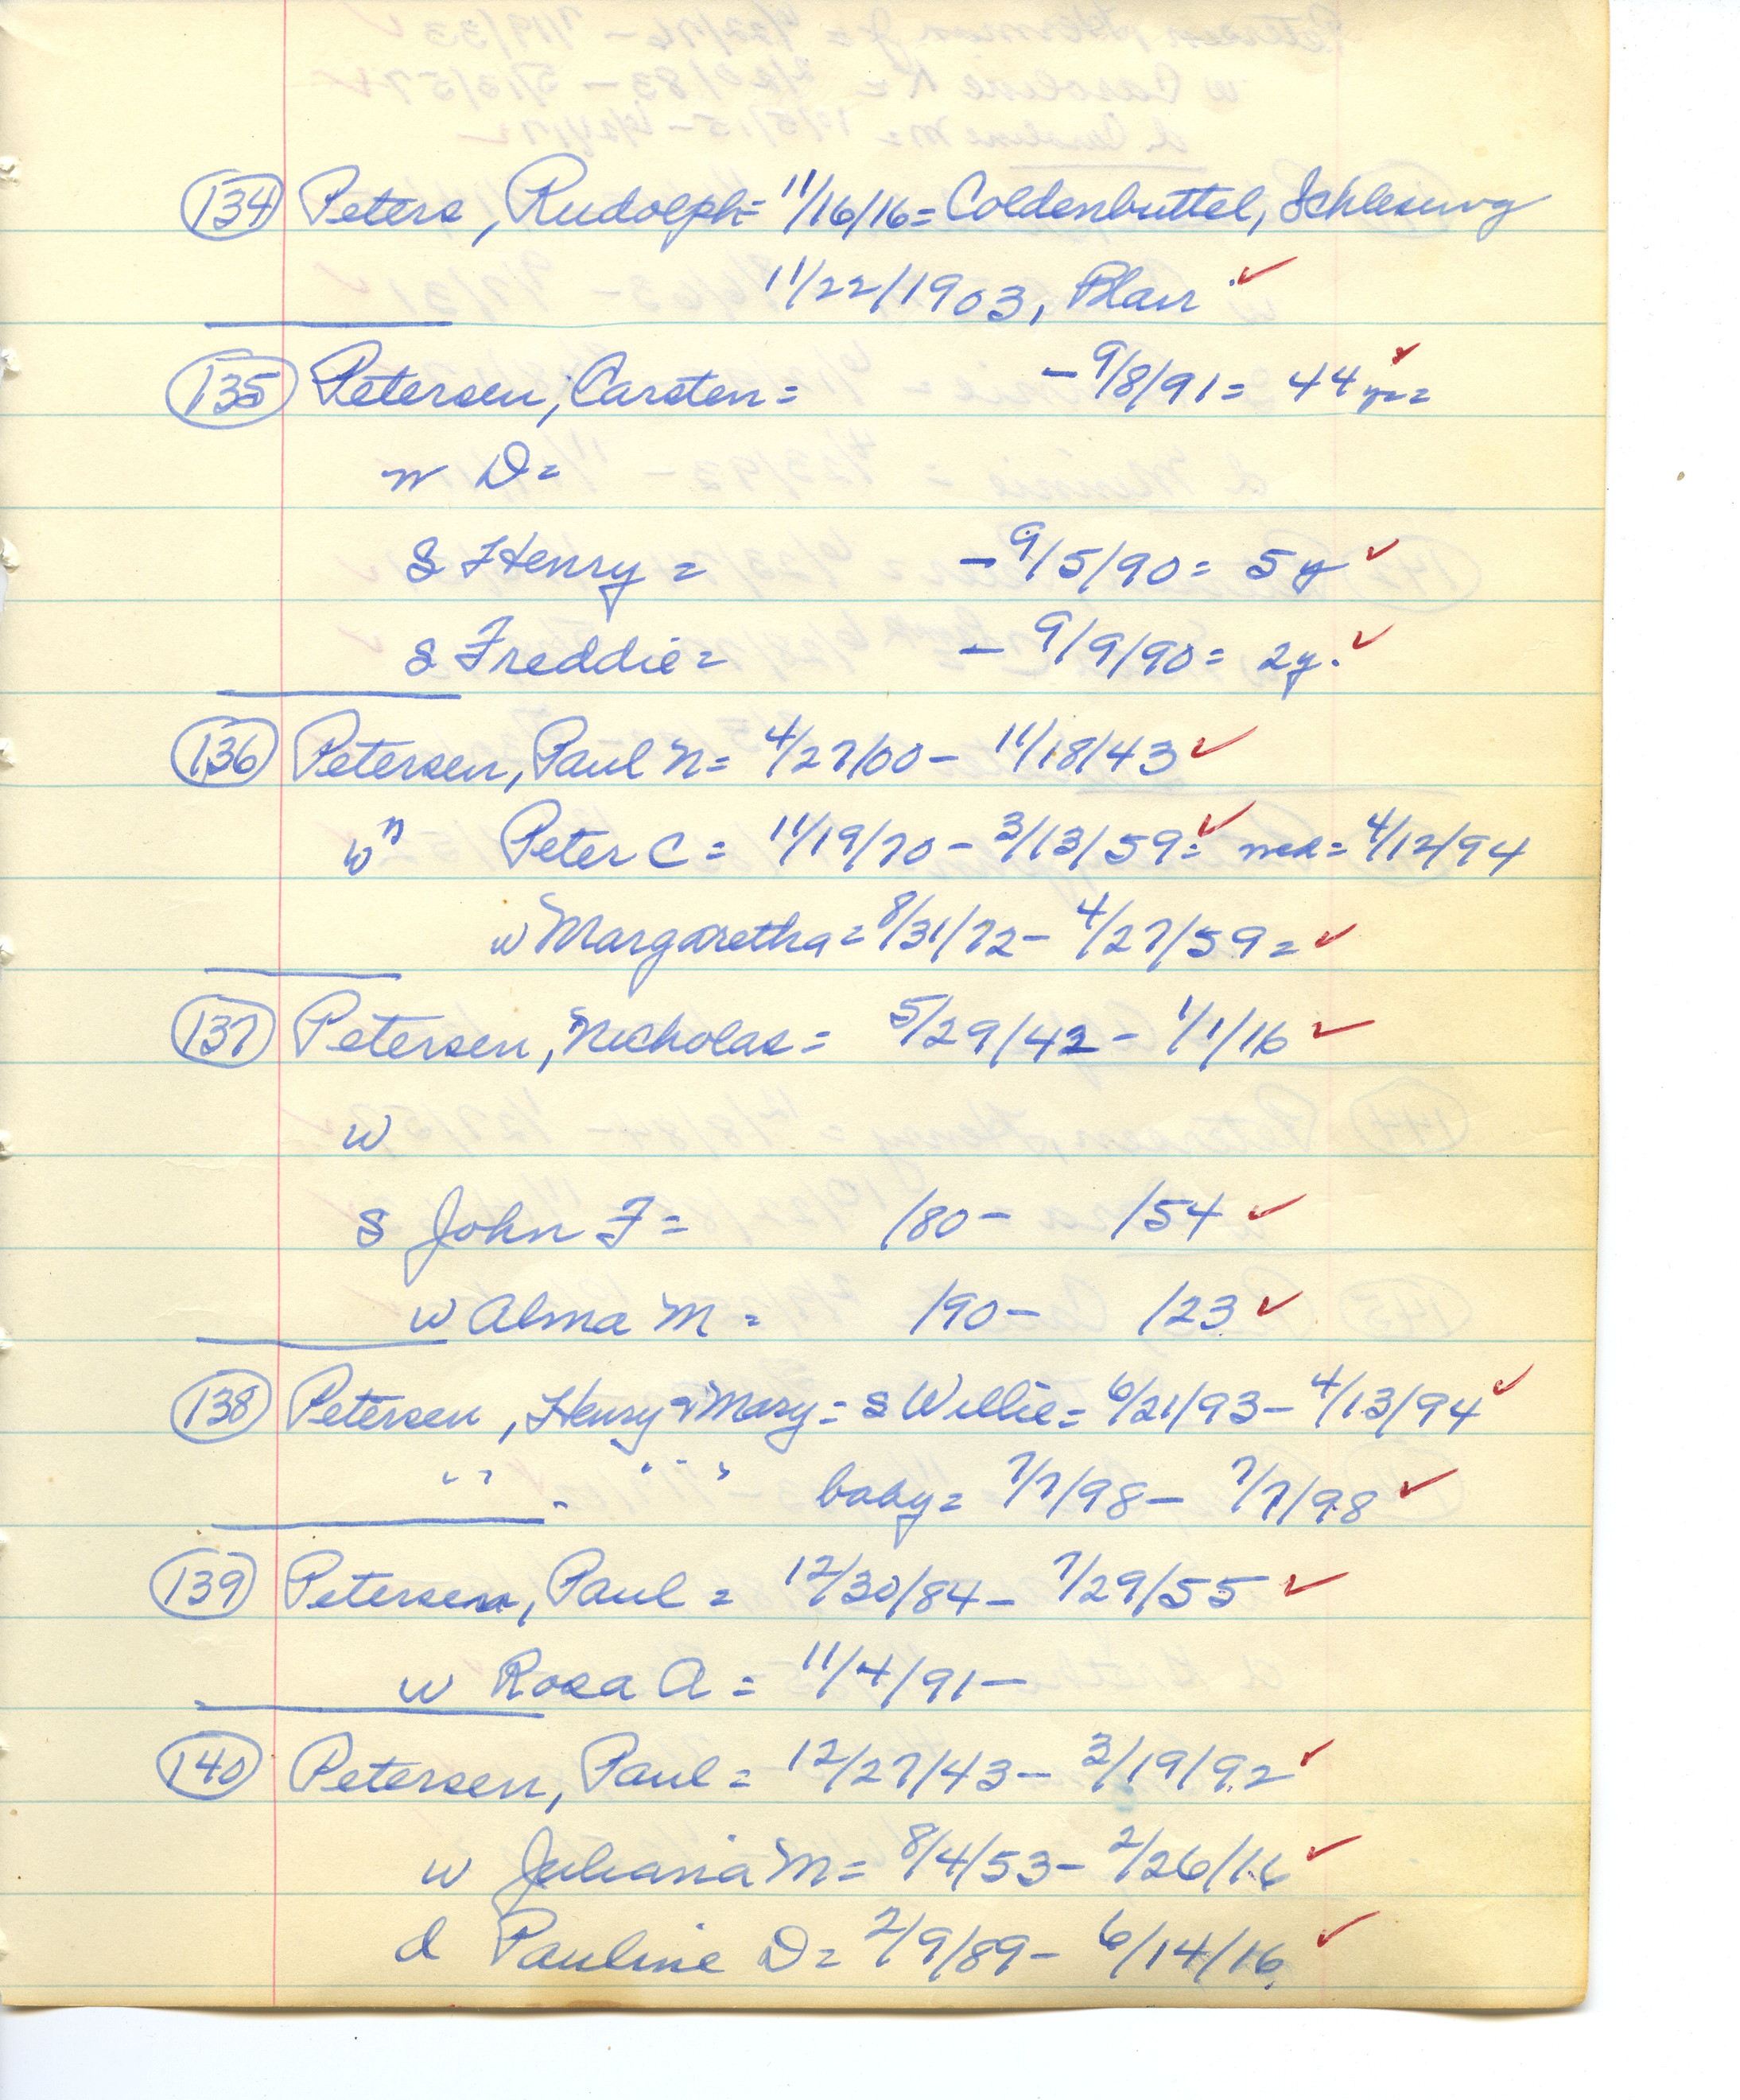 (134) Peters, Rudolph = 11/16/16 = Coldenbuttel, Schleswig
11/22/1903, Blair ✓
(135) Petersen, Carsten = - 9/8/91 = 44 yr = ✓
w D =
S Henry = - 9/5/90 = 5 y ✓
S Freddie = - 9/9/90 = 2 y. ✓
(136) Petersen, Paul N = 4/27/00 - 11/18/43 ✓
w " Peter C = 11/19/70 - 3/13/59 = ✓ med = 4/12/94
w Margaretha = 8/31/72 - 4/27/59 = ✓
(137) Petersen, Nicholas = 5/29/42 - 1/1/16 ✓
w
S John F = /80 - /54 ✓
w Alma M = /90 - /23 ✓
(138) Petersen, Henry & Mary = S Willie = 6/21/93 - 4/13/94 ✓
" " baby = 7/7/98 - 7/7/98 ✓
(139) Petersen, Paul = 12/30/84 - 7/29/55 ✓
w Rosa A = 11/4/91 -
(140) Petersen, Paul = 12/27/43 - 3/19/92 ✓
w Juliana M = 8/4/53 - 2/26/16 ✓
d Pauline D = 2/9/89 - 6/14/16 ✓